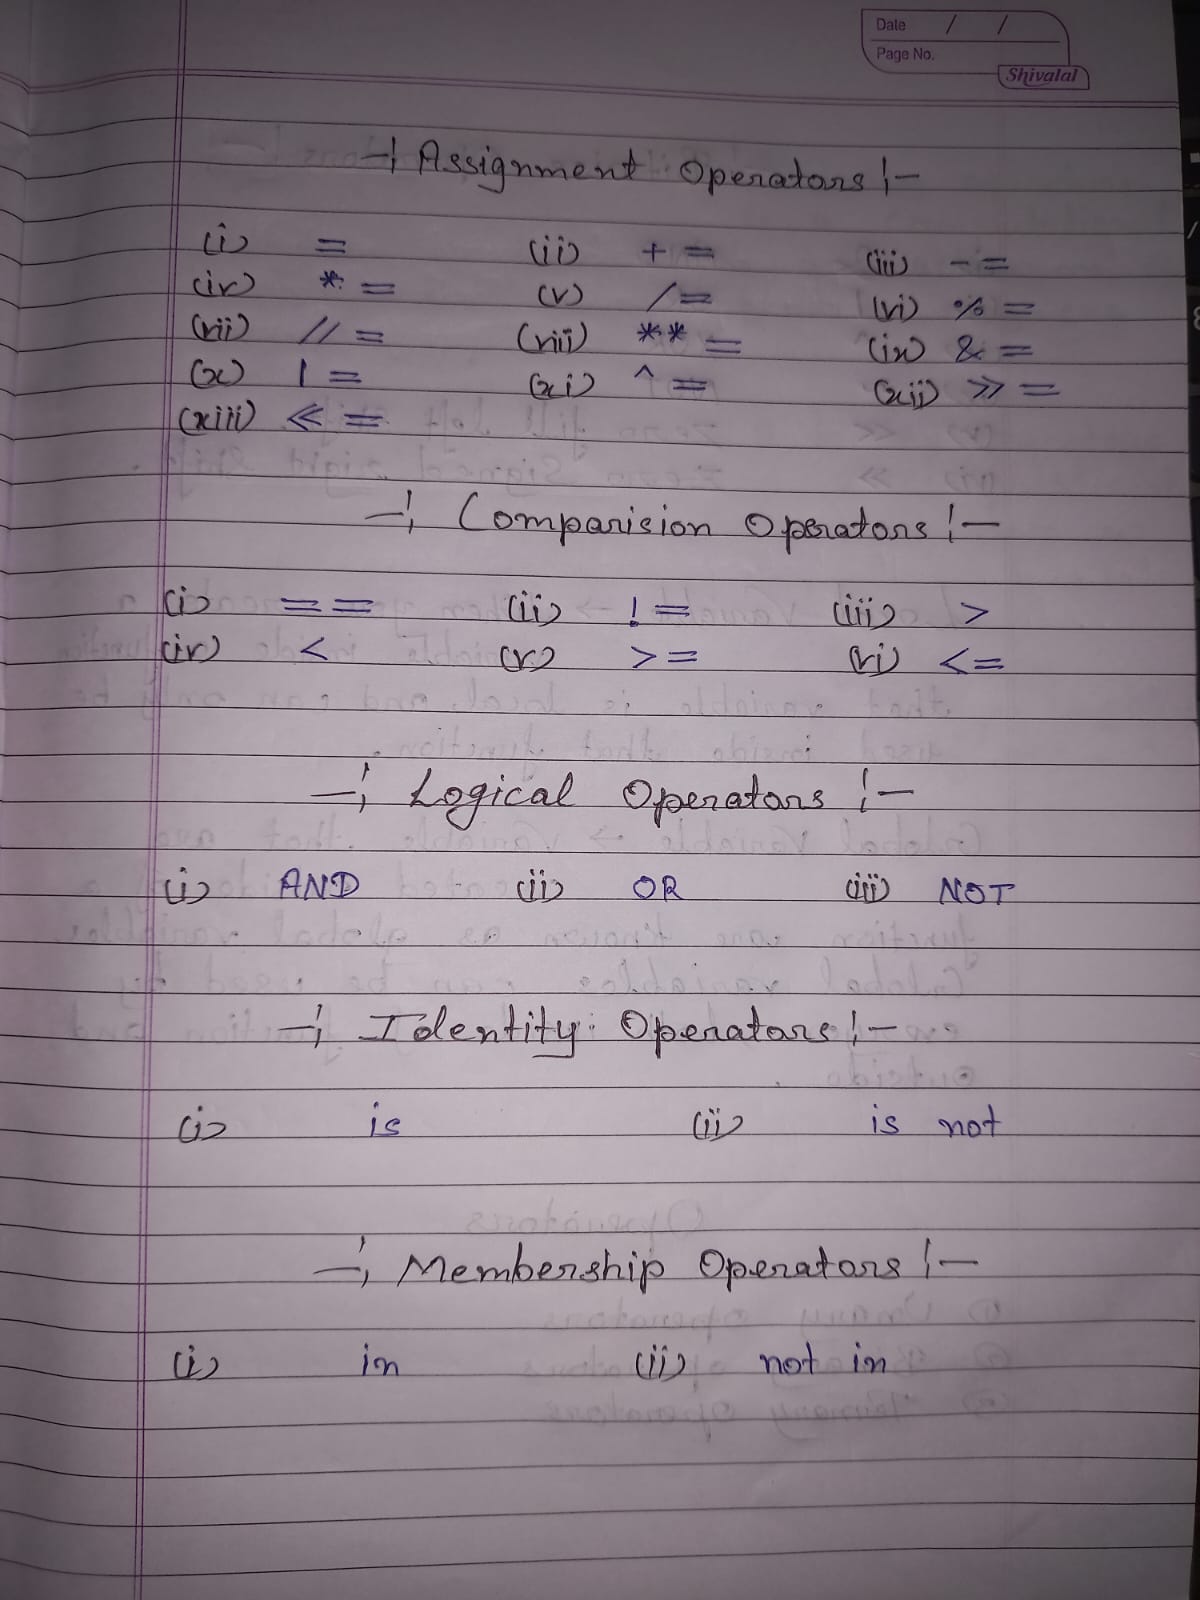 Date / /
Page No.
Shivalal
-: Assignment Operators :-
(i) = (ii) += (iii) -=
(iv) *= (v) /= (vi) %=
(vii) //= (viii) **= (ix) &=
(x) |= (xi) ^= (xii) >>=
(xiii) <<=
-: Comparision Operators :-
(i) == (ii) != (iii) >
(iv) < (v) >= (vi) <=
-: Logical Operators :-
(i) AND (ii) OR (iii) NOT
-: Identity Operators :-
(i) is (ii) is not
-: Membership Operators :-
(i) in (ii) not in